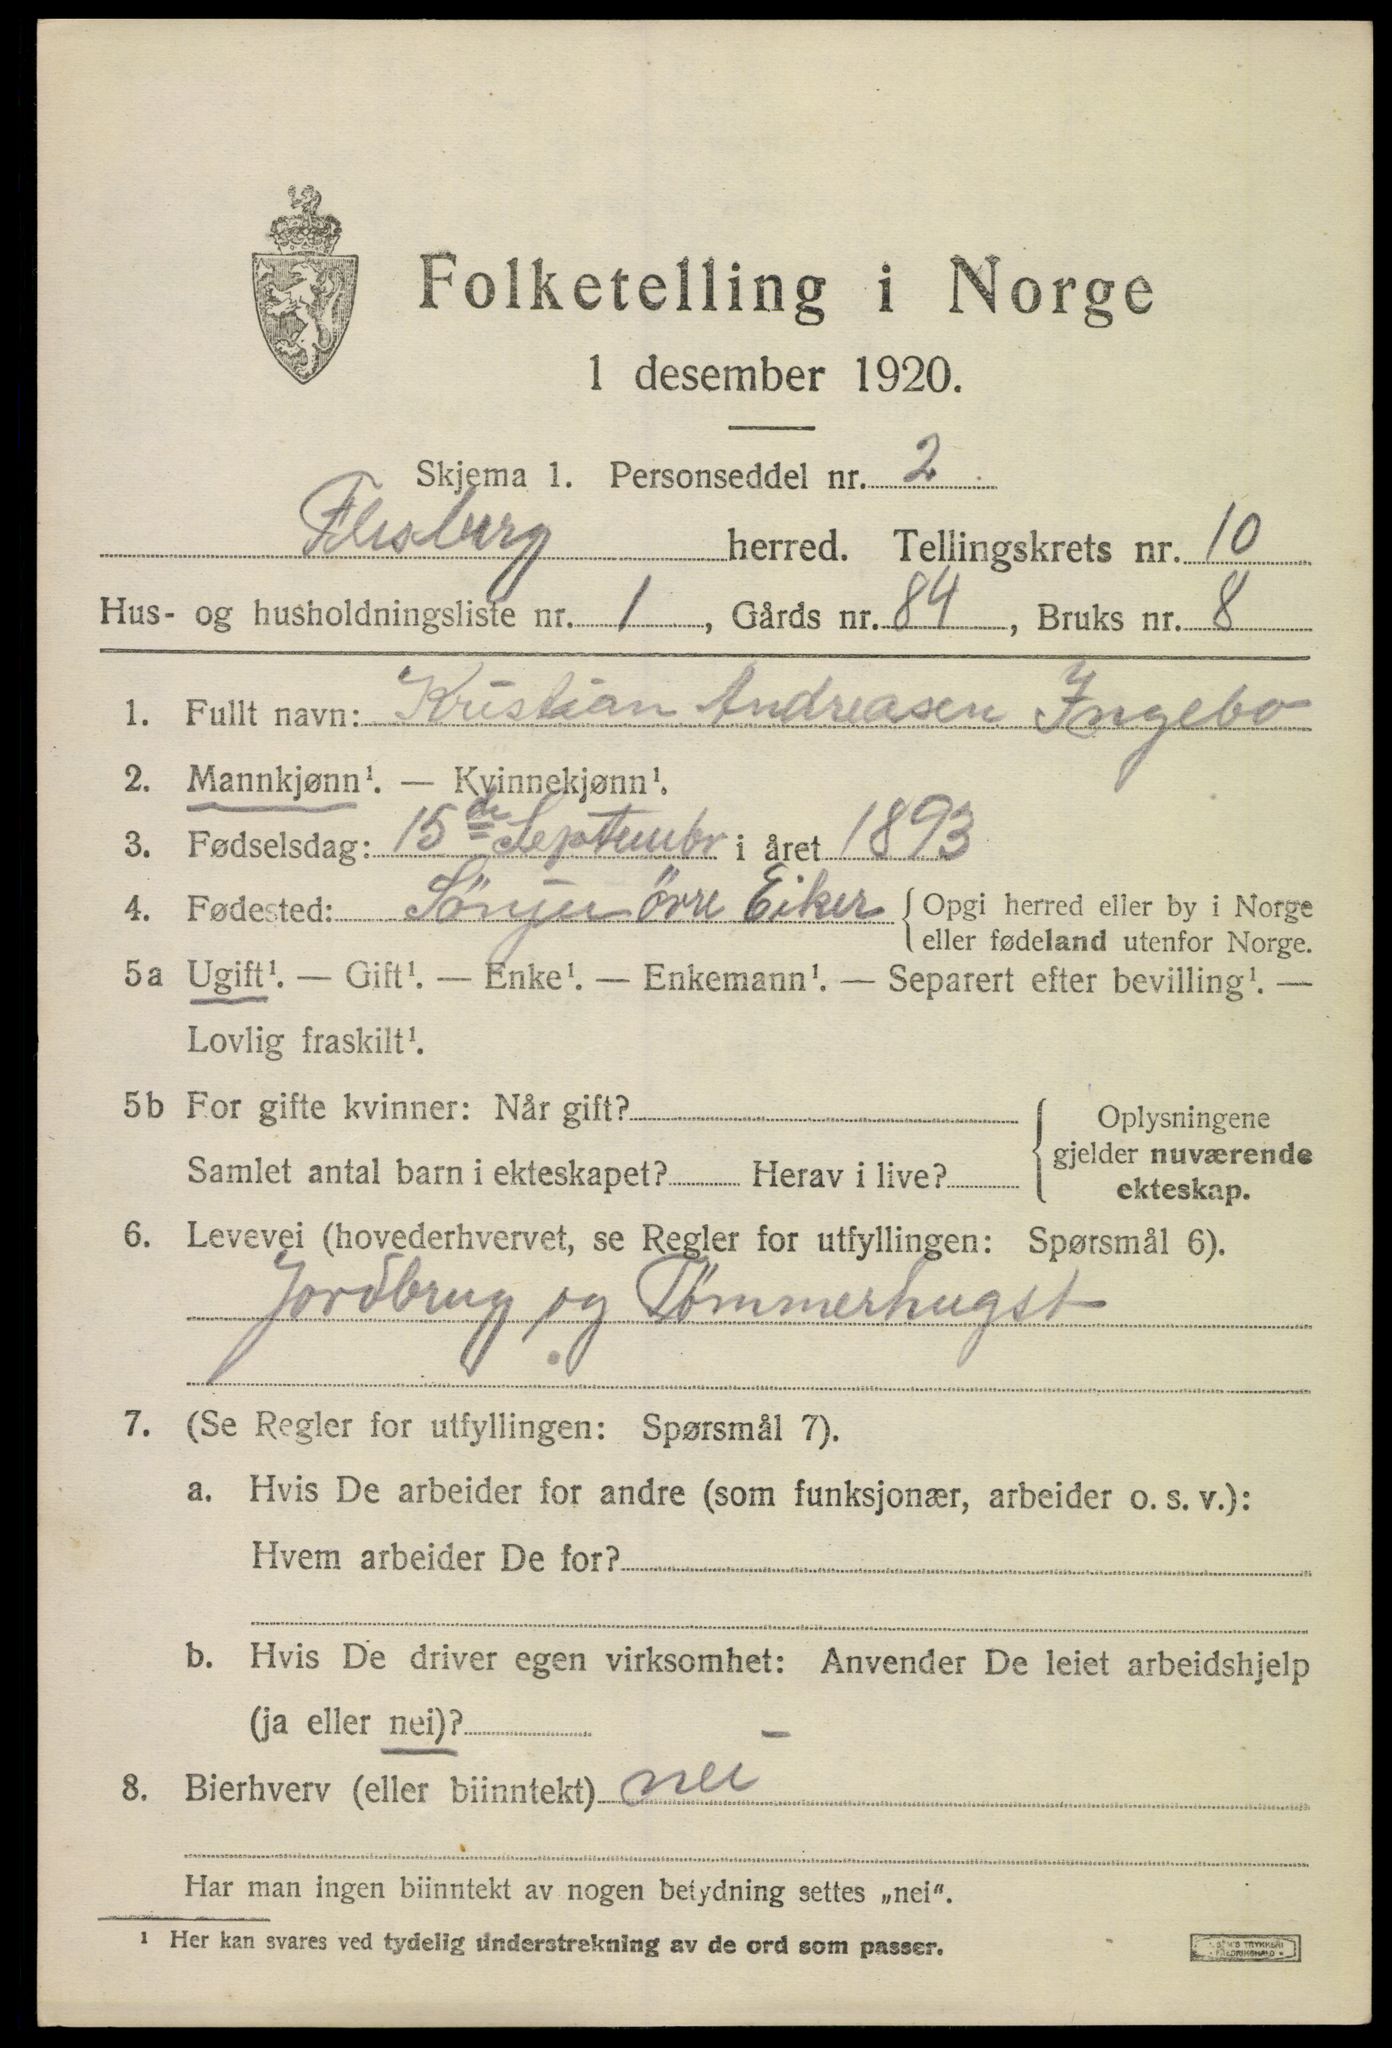 Folketelling i Norge
1 desember 1920.
Skjema 1. Personseddel nr. 2
Flesberg herred. Tellingskrets nr. 10
Hus- og husholdningsliste nr. 1, Gårds nr. 84, Bruks nr. 8
1. Fullt navn: Kristian Andreasen Ingebo
2. Mannkjønn¹. — Kvinnekjønn¹.
3. Fødselsdag: 15de Septembr i året 1893
4. Fødested: övre Eiker { Opgi herred eller by i Norge
eller fødeland utenfor Norge.
5a Ugift¹. — Gift¹. — Enke¹. — Enkemann¹. — Separert efter bevilling¹. —
Lovlig fraskilt¹.
5b For gifte kvinner: Når gift? { Oplysningene
gjelder nuværende
Samlet antal barn i ekteskapet? Herav i live?
ekteskap.
6. Levevei (hovederhvervet, se Regler for utfyllingen: Spørsmål 6).
Jordbrug og Tømmerhugst
7. (Se Regler for utfyllingen: Spørsmål 7).
a. Hvis De arbeider for andre (som funksjonær, arbeider o. s. v.):
Hvem arbeider De for?
b. Hvis De driver egen virksomhet: Anvender De leiet arbeidshjelp
(ja eller nei)? –
8. Bierhverv (eller biinntekt) nei
Har man ingen biinntekt av nogen betydning settes „nei“.
¹ Her kan svares ved tydelig understrekning av de ord som passer.
TRYKKERI
FREDRIKSHALD